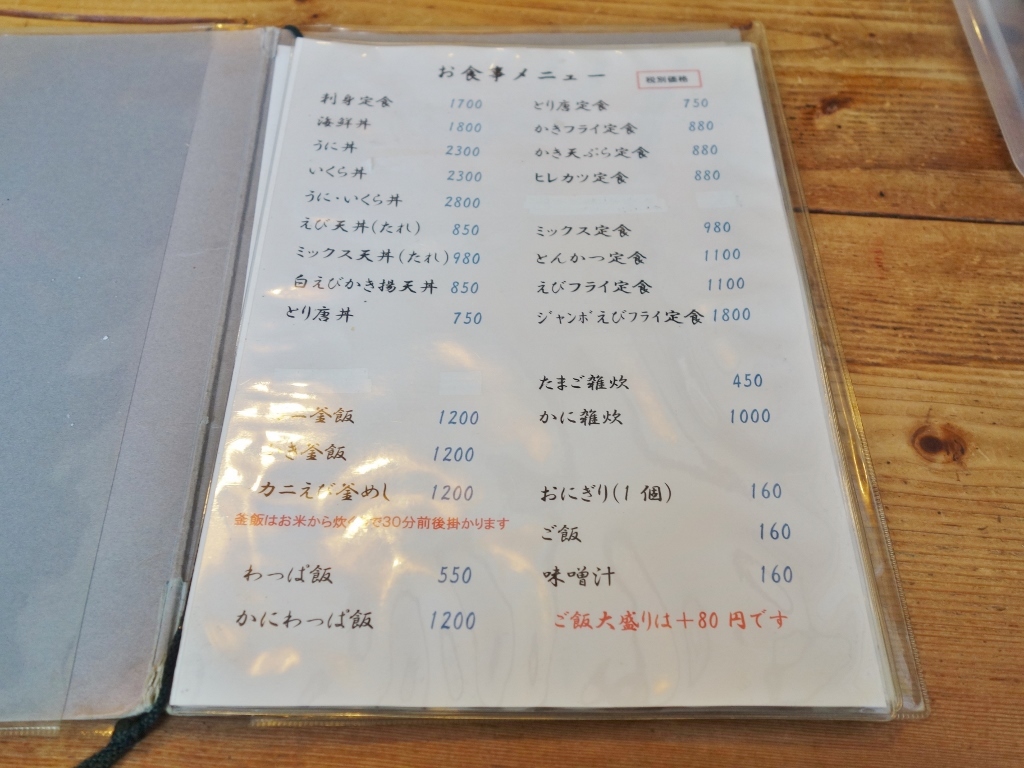 お食事メニュー
税別価格
刺身定食 1700
海鮮丼 1800
うに丼 2300
いくら丼 2300
うに・いくら丼 2800
えび天丼(たれ) 850
ミックス天丼(たれ) 980
白えびかき揚天丼 850
とり唐丼 750
釜飯 1200
き釜飯 1200
カニえび釜めし 1200
釜飯はお米から炊 で30分前後掛かります
わっぱ飯 550
かにわっぱ飯 1200
とり唐定食 750
かきフライ定食 880
かき天ぷら定食 880
ヒレカツ定食 880
ミックス定食 980
とんかつ定食 1100
えびフライ定食 1100
ジャンボえびフライ定食 1800
たまご雑炊 450
かに雑炊 1000
おにぎり(1個) 160
ご飯 160
味噌汁 160
ご飯大盛りは+80円です